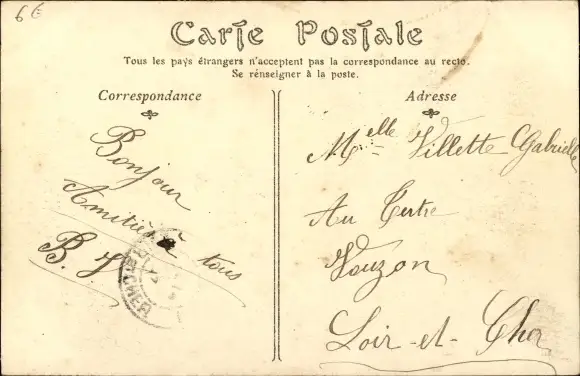 6 €
Carte Postale
Tous les pays étrangers n'acceptent pas la correspondance au recto.
Se rénseigner à la poste.
Correspondance
Bonjour
Amitiés à tous
B. J
Adresse
Melle Villette Gabrielle
Au Tertre
Vouzon
Loir-et-Cher